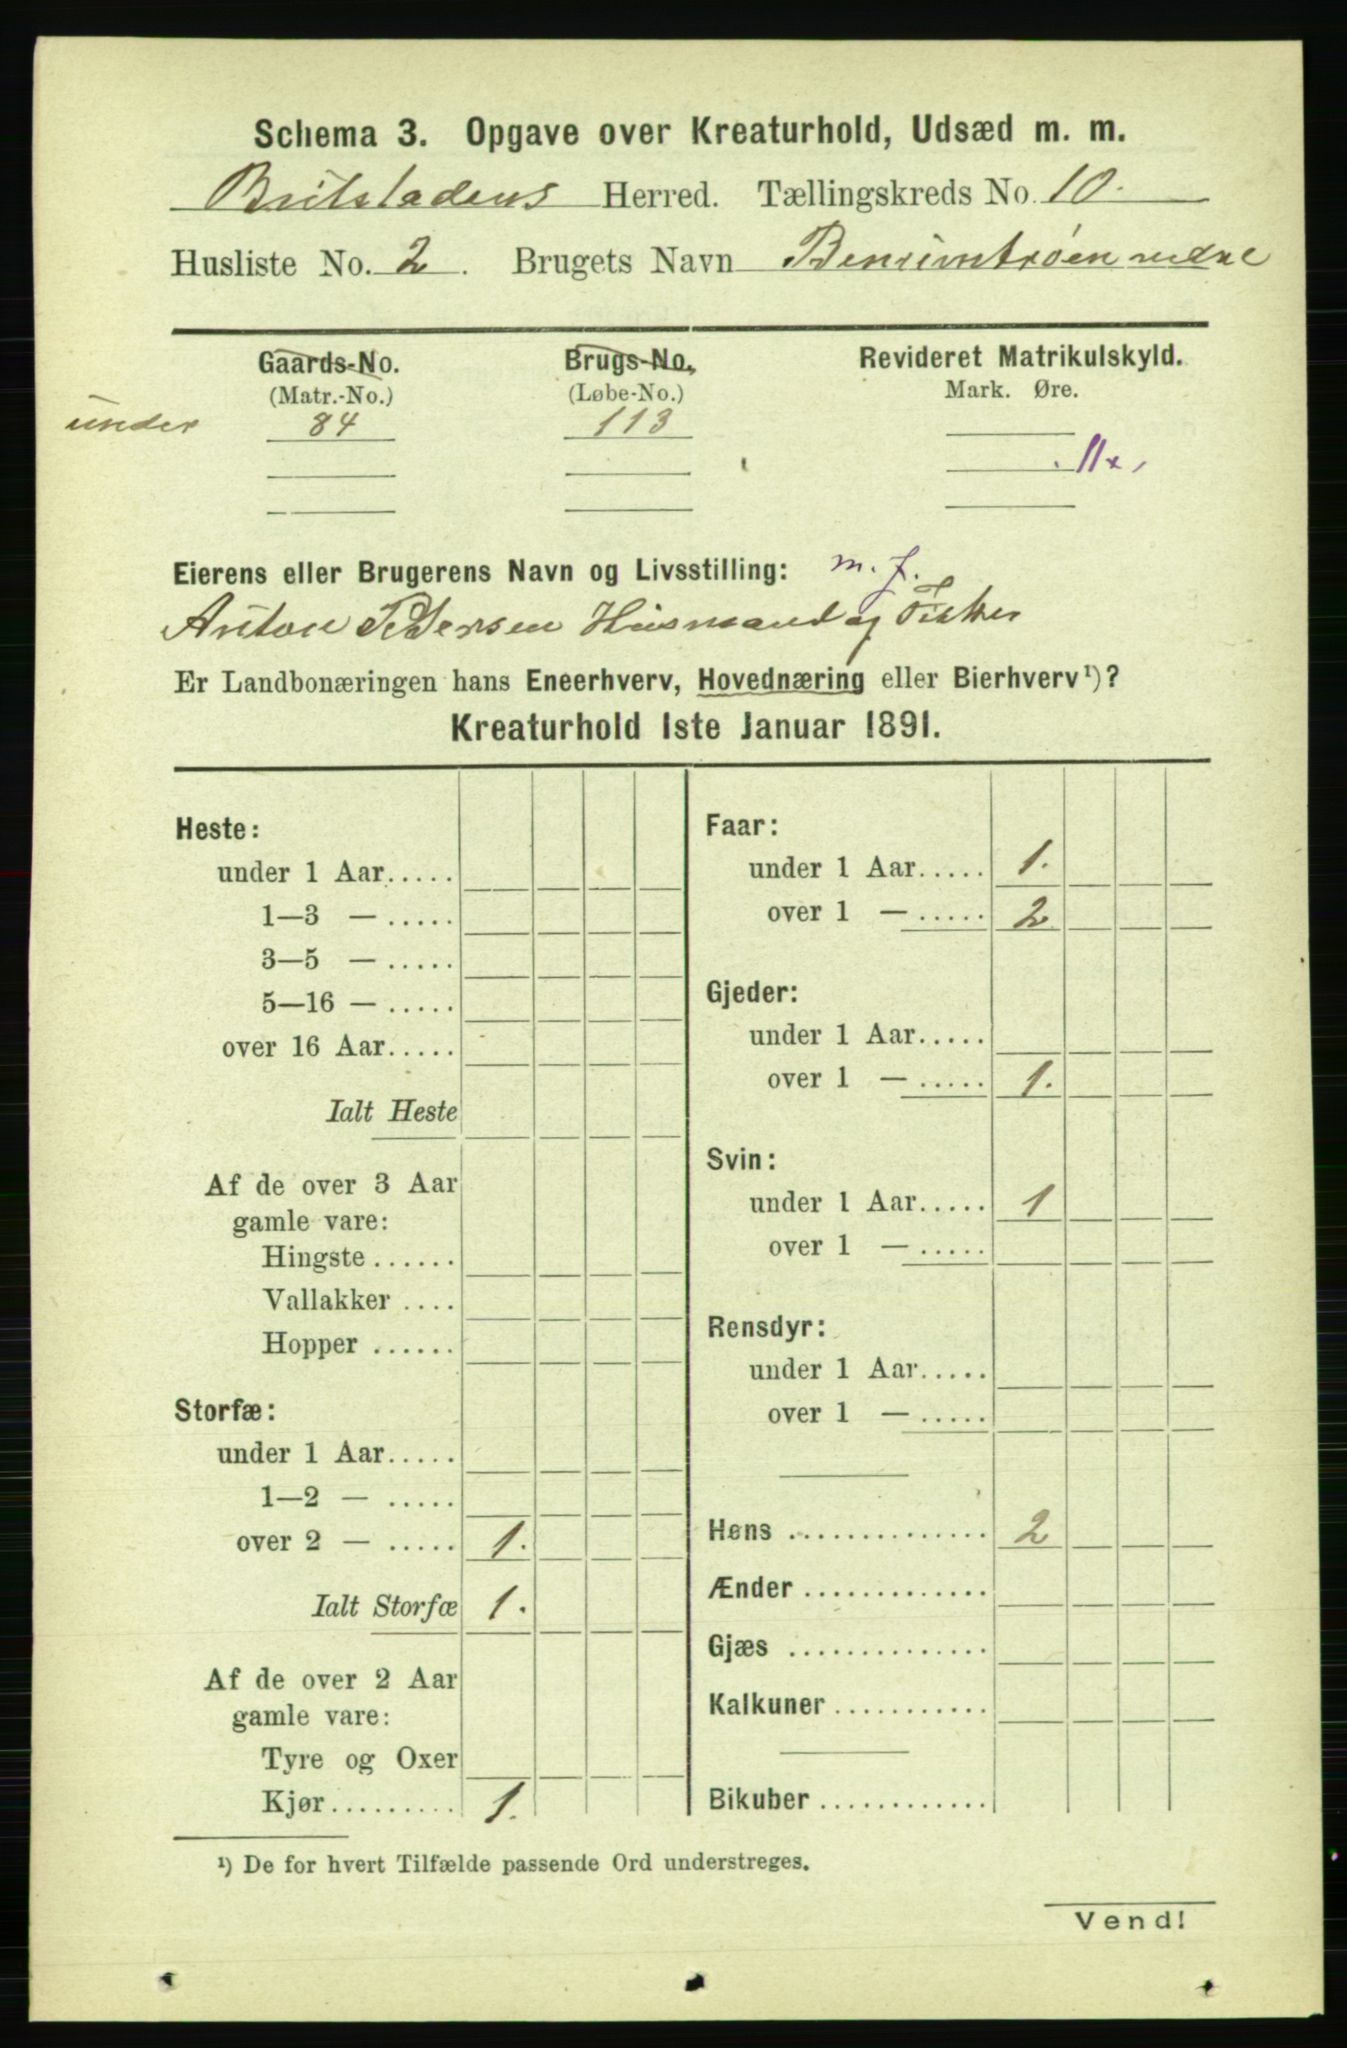 Schema 3. Opgave over Kreaturhold, Udsæd m. m.
Beitstadens Herred. Tællingskreds No. 10.
Husliste No. 2. Brugets Navn
Gaards-No. Brugs-No. Revideret Matrikulskyld.
(Matr.-No.) (Løbe-No.) Mark. Øre.
under 84 113
Eierens eller Brugerens Navn og Livsstilling: m. f.
Anton Pedersen Husmand og Fisker
Er Landbonæringen hans Eneerhverv, Hovednæring eller Bierhverv¹)?
Kreaturhold 1ste Januar 1891.
Heste:
under 1 Aar.....
1—3 — .....
3—5 — .....
5—16 — .....
over 16 Aar.....
Ialt Heste
Af de over 3 Aar
gamle vare:
Hingste ......
Vallakker ....
Hopper ......
Storfæ:
under 1 Aar.....
1—2 — .....
over 2 — ..... 1.
Ialt Storfæ 1.
Af de over 2 Aar
gamle vare:
Tyre og Oxer
Kjør......... 1.
Faar:
under 1 Aar..... 1.
over 1 — ..... 2
Gjeder:
under 1 Aar.....
over 1 — ..... 1.
Svin:
under 1 Aar..... 1
over 1 — .....
Rensdyr:
under 1 Aar.....
over 1 — .....
Høns .............. 2
Ænder .............
Gjæs ..............
Kalkuner ...........
Bikuber ............
¹) De for hvert Tilfælde passende Ord understreges.
Vend!